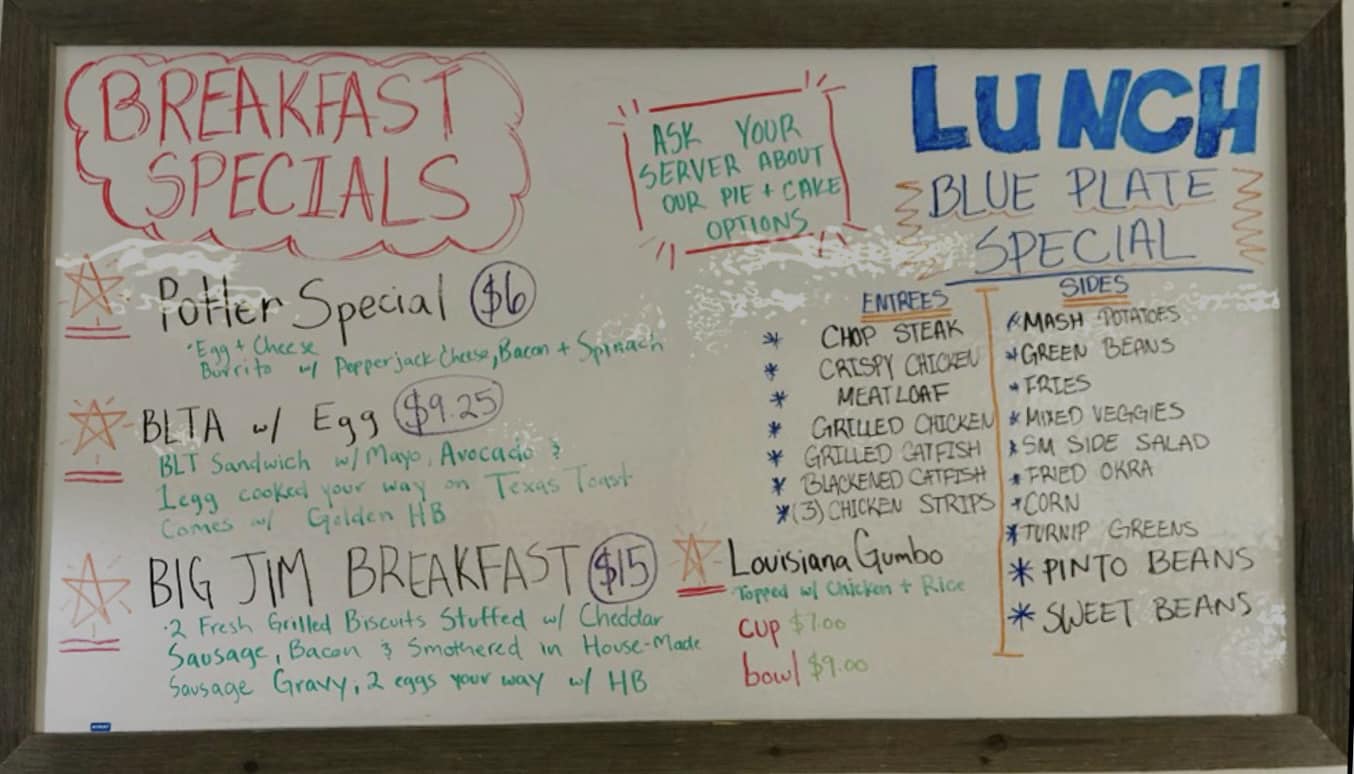 BREAKFAST
SPECIALS
Potter Special $6
• Egg + Cheese
Burrito w/ Pepperjack Cheese, Bacon + Spinach
BLTA w/ Egg $9.25
BLT Sandwich w/ Mayo, Avocado &
1 egg cooked your way on Texas Toast
Comes w/ Golden HB
BIG JIM BREAKFAST $15
• 2 Fresh Grilled Biscuits Stuffed w/ Cheddar
Sausage, Bacon & Smothered in House-Made
Sausage Gravy, 2 eggs your way w/ HB
ASK YOUR
SERVER ABOUT
OUR PIE + CAKE
OPTIONS
LUNCH
BLUE PLATE
SPECIAL
ENTREES
* CHOP STEAK
* CRISPY CHICKEN
* MEATLOAF
* GRILLED CHICKEN
* GRILLED CATFISH
* BLACKENED CATFISH
* (3) CHICKEN STRIPS
SIDES
* MASH POTATOES
* GREEN BEANS
* FRIES
* MIXED VEGGIES
* SM SIDE SALAD
* FRIED OKRA
* CORN
* TURNIP GREENS
* PINTO BEANS
* SWEET BEANS
Louisiana Gumbo
Topped w/ Chicken + Rice
cup $7.00
bowl $9.00